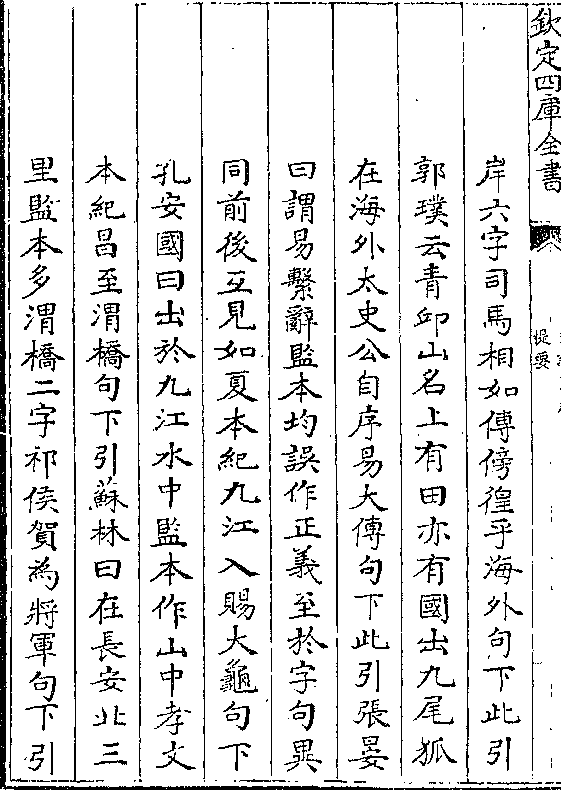 欽定四庫全書
提要
岸六字司馬相如傳傍徨乎海外句下此引
郭璞云青邱山名上有田亦有國出九尾狐
在海外太史公自序易大傳句下此引張晏
曰謂易繫辭監本均誤作正義至於字句異
同前後互見如夏本紀九江入賜大龜句下
孔安國曰出於九江水中監本作山中孝文
本紀昌至渭橋句下引蘇林曰在長安北三
里監本多渭橋二字祁侯賀為將軍句下引